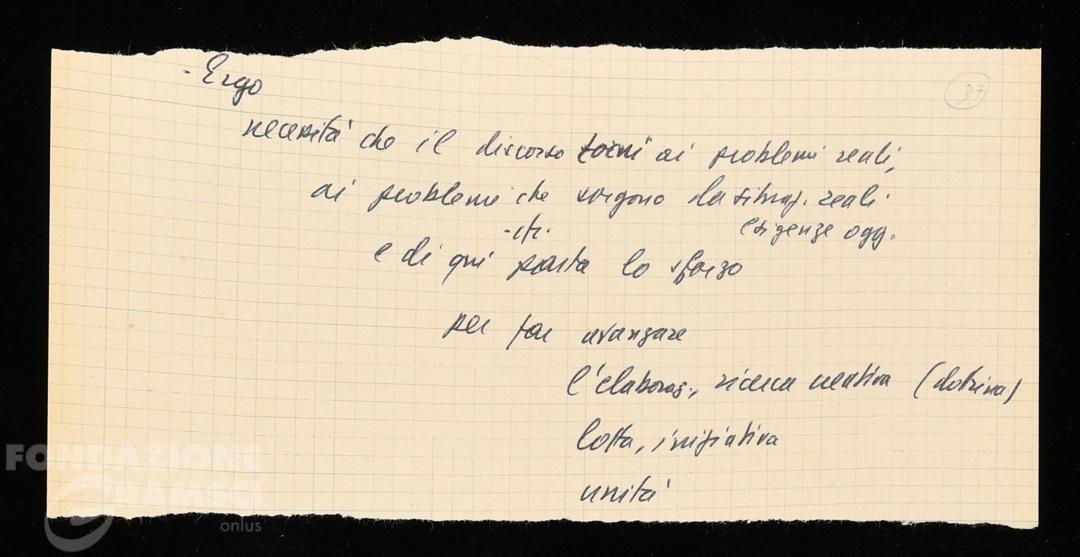 - Ergo
87
necessità che il discorso torni ai problemi reali,
ai problemi che sorgono da situaz. reali.
esigenze ogg.
e di qui parta lo sforzo
per far avanzare
l'elaboraz., ricerca creativa (dottrina)
lotta, iniziativa
unità
FONDAZIONE
GRAMSCI
onlus